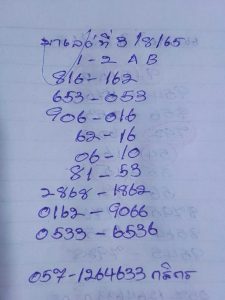 มาเลย์ที่ 3/8/65
1-2 A B
816-162
653-053
906-016
62-16
06-10
81-53
2868-1862
0162-9066
0533-6536
057-1264633 กสิกร